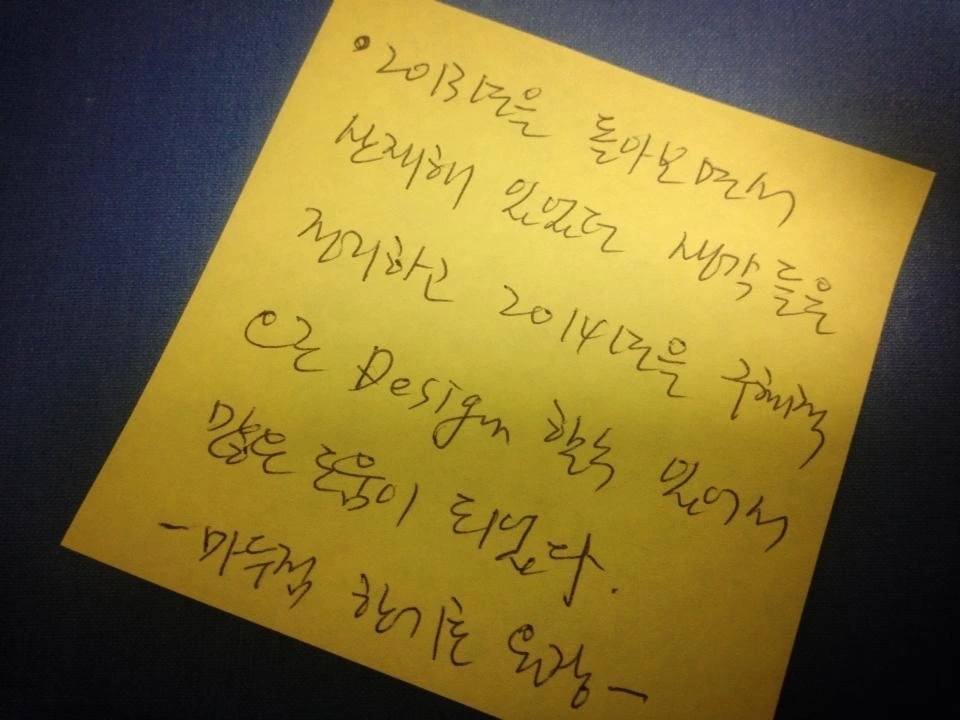 • 2013년을 돌아보면서
산재해 있었던 생각들을
정리하고 2014년을 구체적
으로 Design 할 수 있어서
많은 도움이 되었다.
- 마두점 한기훈 원장 -